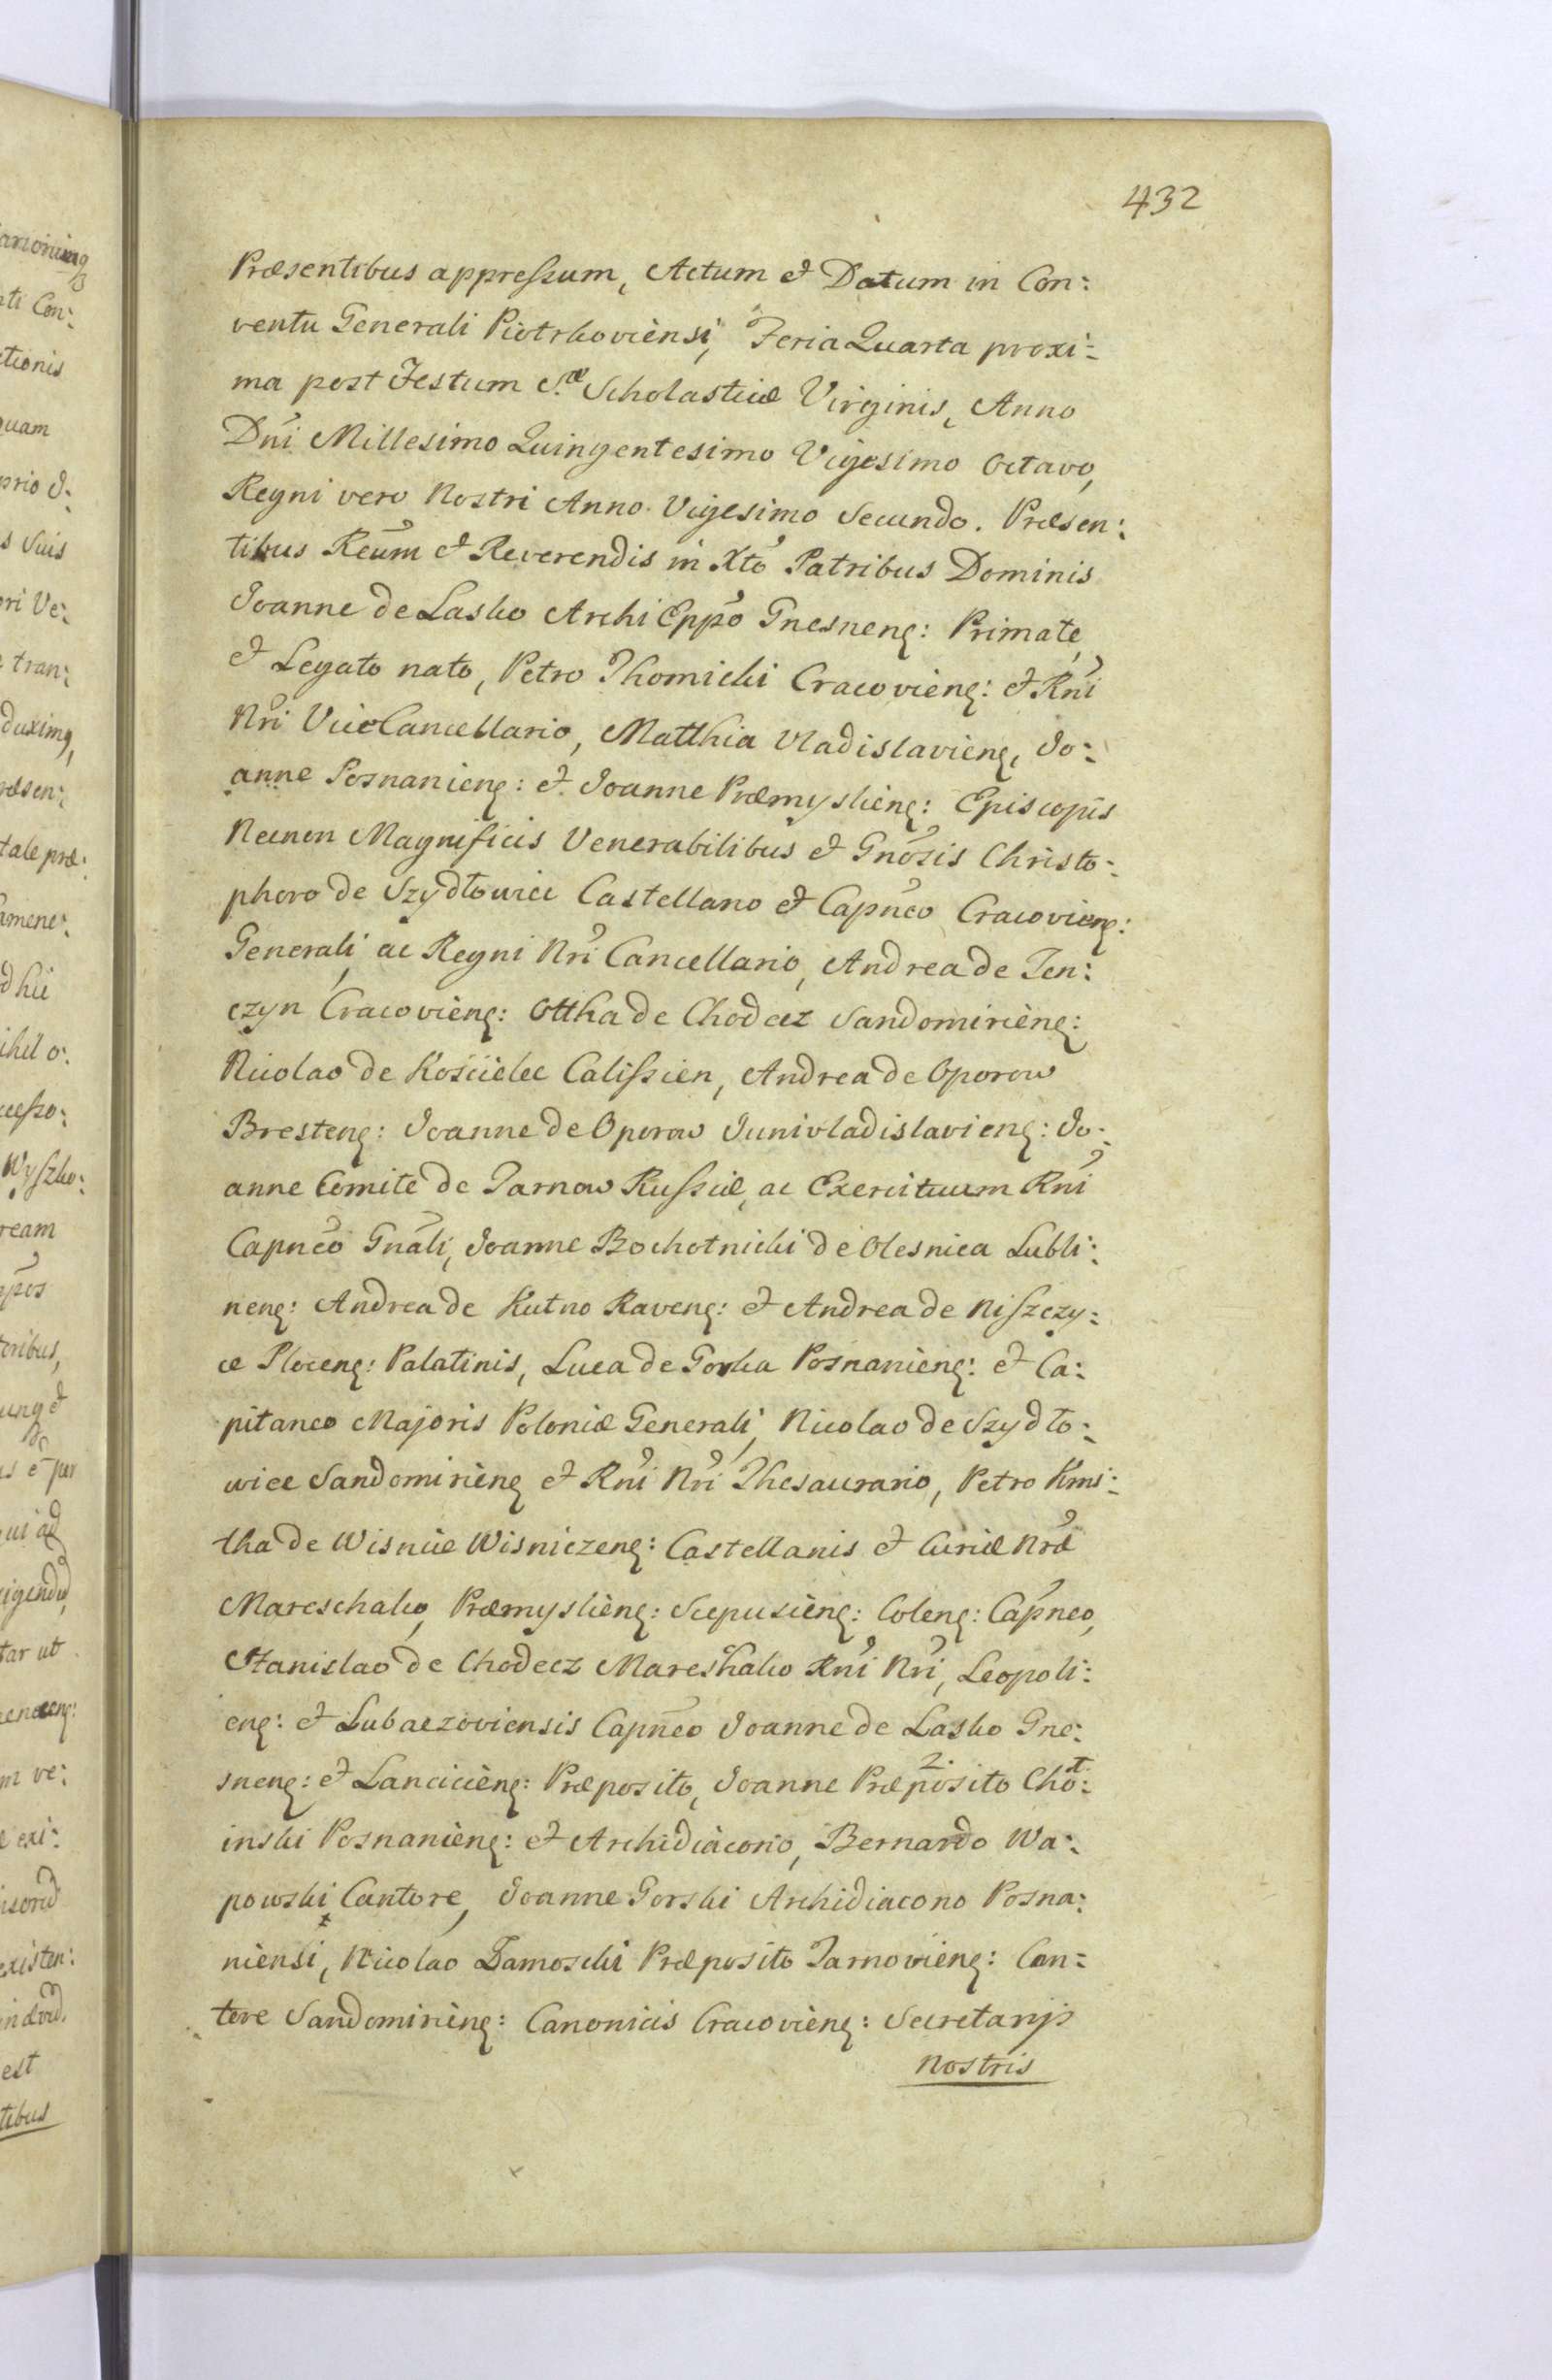 432
Præsentibus appressum, Actum et Datum in Con:
ventu Generali Piotrkoviensi, Feria Quarta proxi:
ma post Festum S.æ Scholasticæ Virginis, Anno
Dñi Millesimo Quingentesimo Vigesimo Octavo,
Regni vero Nostri Anno Vigesimo Secundo. Præsen:
tibus Reũm et Reverendis in Xtõ Patribus Dominis
Joanne de Lasko Archi Eppõ Gnesnenȩ: Primate,
et Legato nato, Petro Thomicki Cracovienȩ: et Rñi
Nri Vice Cancellario, Matthia Vladislavienȩ, Jo:
anne Posnanienȩ: et Joanne Præmyslienȩ: Episcopis
Necnon Magnificis Venerabilibus et Gnõsis Christo:
phoro de Szydłowice Castellano et Capnẽo Cracovienȩ:
Generali, ac Regni Nri Cancellario, Andrea de Ten:
czyn Cracovienȩ: Ottha de Chodecz Sandomirienȩ:
Nicolao de Kościelec Calissien, Andrea de Oporow
Brestenȩ: Joanne de Oporow Junivladislavienȩ: Jo:
anne Comite de Tarnow Russiæ, ac Exercituum Rñi
Capnẽo Gnãli, Joanne Bochotnicki de Olesnica Lubli:
nenȩ: Andrea de Kutno Ravenȩ: et Andrea de Niszczy:
ce Plocenȩ: Palatinis, Luca de Gorka Posnanienȩ: et Ca:
pitaneo Majoris Poloniæ Generali, Nicolao de Szydło:
wice Sandomirienȩ et Rñi Nri Thesaurario, Petro Kmi:
tha de Wisnice Wisniczenȩ: Castellanis et Curiæ Nræ
Mareschalco, Præmyslienȩ: Scepusienȩ: Colenȩ: Capñeo,
Stanislao de Chodecz Mareshalco Rñi Nri, Leopoli:
enȩ: et Lubaczoviensis Capnẽo Joanne de Lasko Gne:
snenȩ: et Lancicienȩ: Præposito, Joanne Præposito Chot:
inski Posnanienȩ: et Archidiacono, Bernardo Wa:
powski Cantore, Joanne Gorski Archidiacono Posna:
niensi, Nicolao Zamoscki Præposito Tarnovienȩ: Can:
tore Sandomirienȩ: Canonicis Cracovienȩ: Secretarijs
nostris